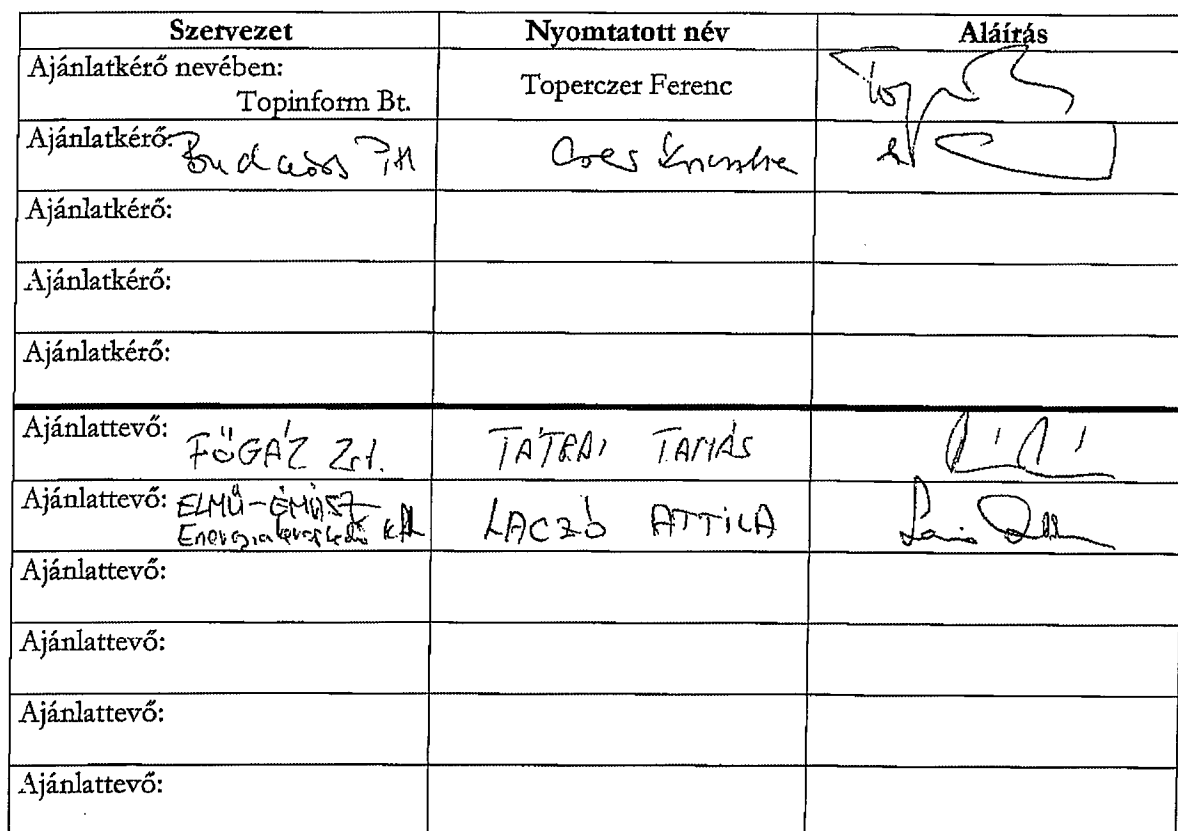 Szervezet Nyomtatott név Aláírás
Ajánlatkérő nevében:
Topinform Bt. Toperczer Ferenc
Ajánlatkérő: Budaörs
Ajánlatkérő:
Ajánlatkérő:
Ajánlatkérő:
Ajánlattevő: FŐGÁZ Zrt. TÁTRAI TAMÁS
Ajánlattevő: ELMŰ-ÉMÁSZ LACZÓ ATTILA
Energiakereskedő Kft
Ajánlattevő:
Ajánlattevő:
Ajánlattevő:
Ajánlattevő: